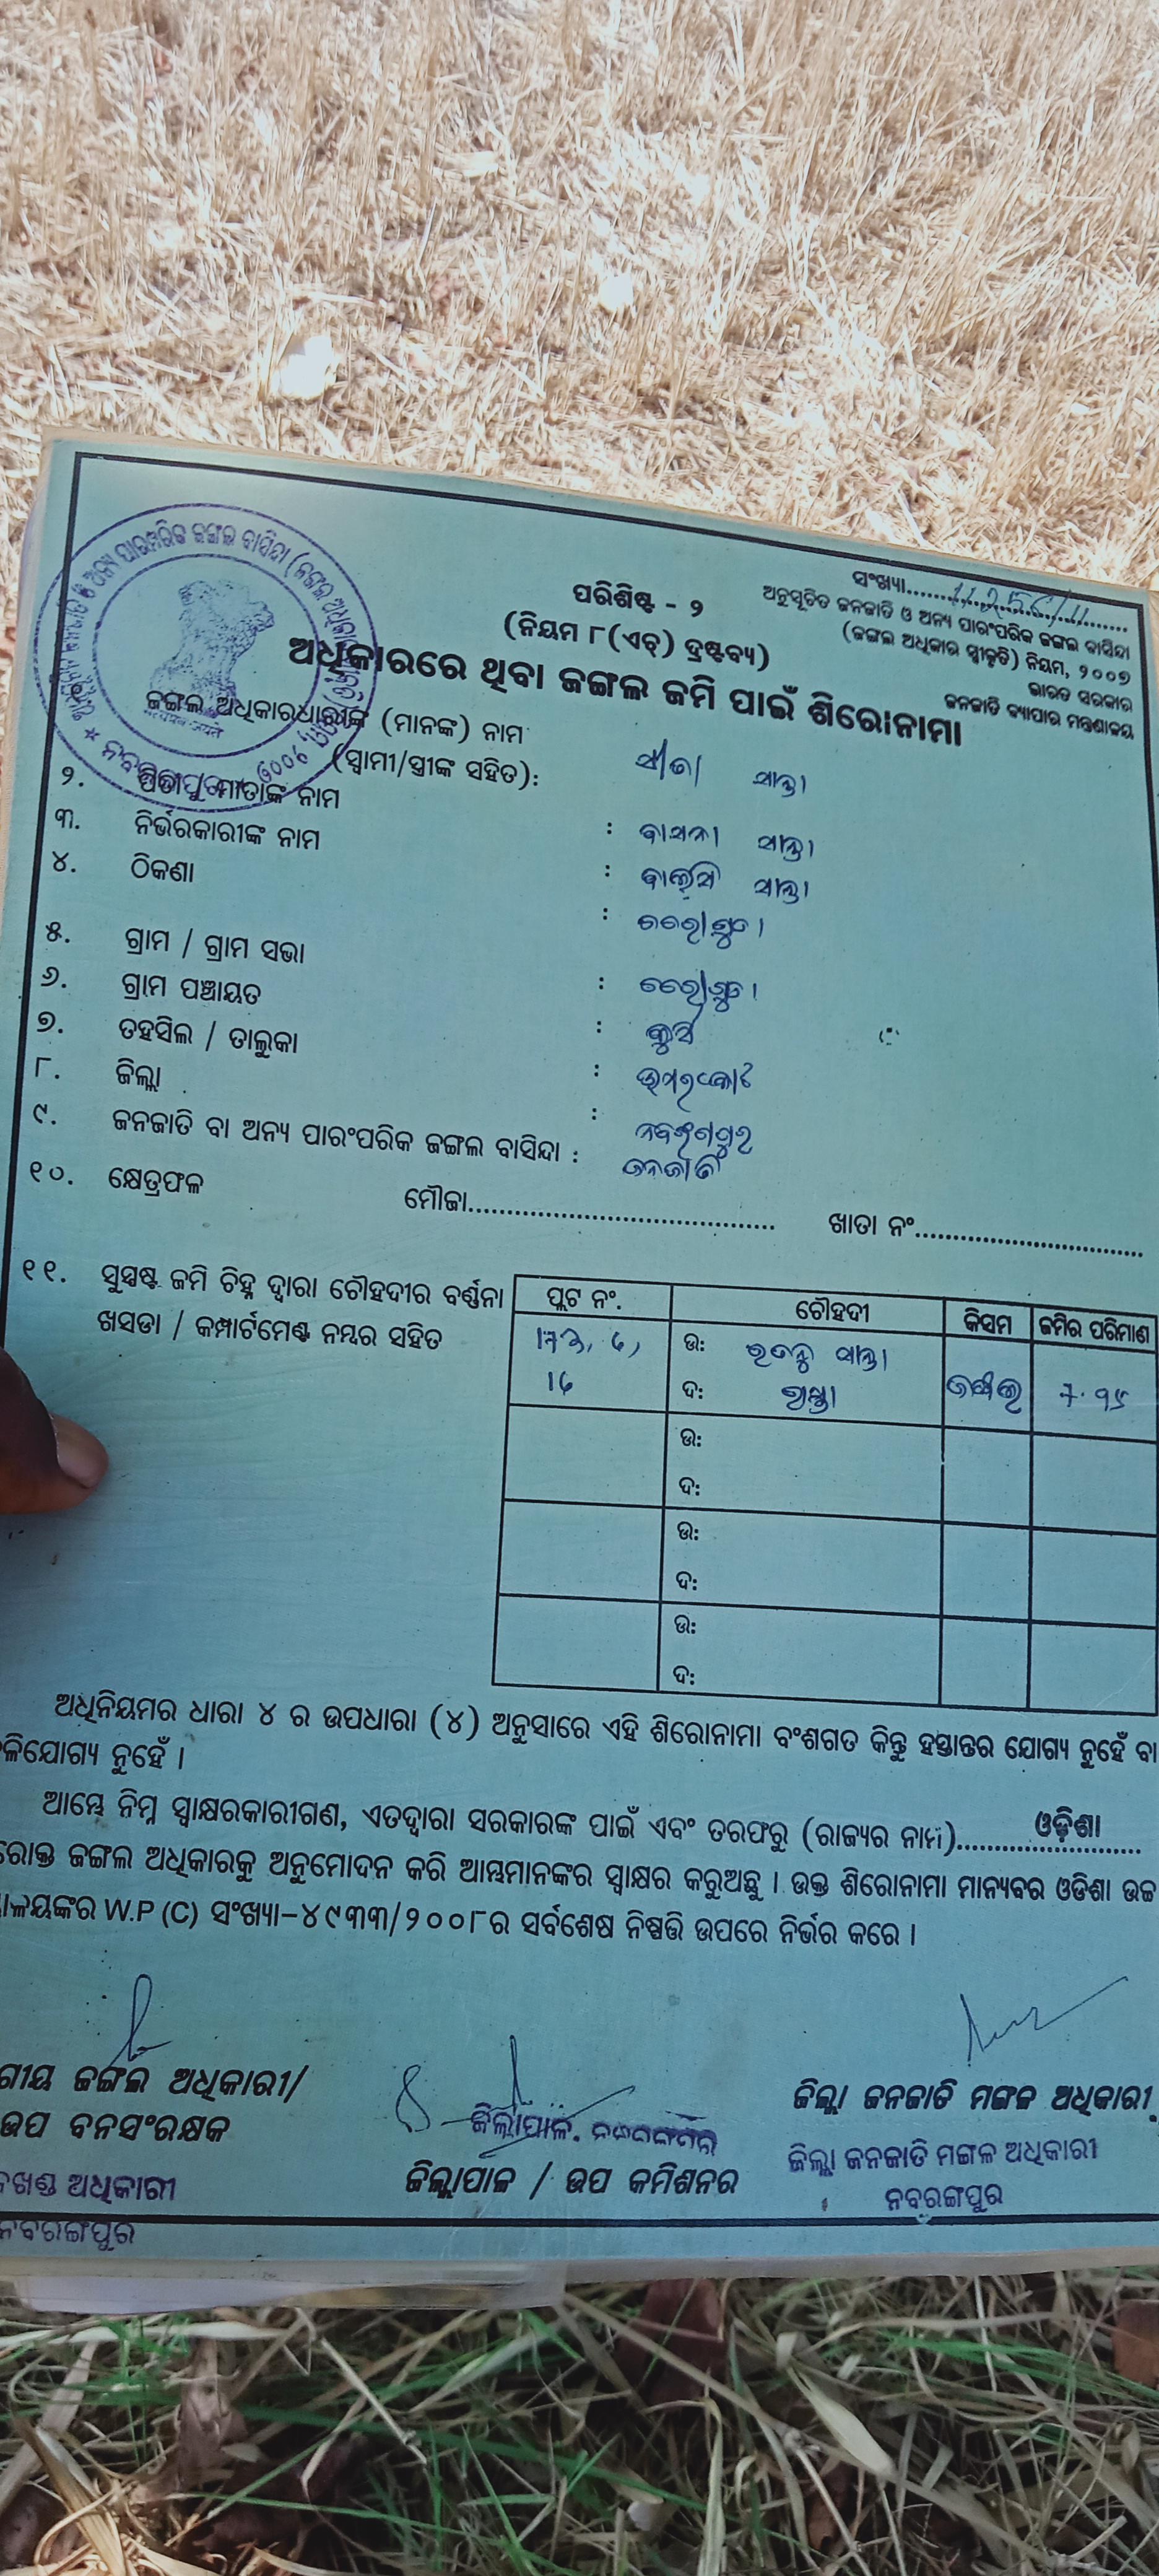 ସଂଖ୍ୟା
ଅନୁସୂଚିତ ଜନଜାତି ଓ ଅନ୍ୟ ପାରଂପରିକ ଜଙ୍ଗଲ ବାସିନ୍ଦା
(ଜଙ୍ଗଲ ଅଧିକାର ସ୍ୱୀକୃତି) ନିୟମ, ୨୦୦୭
ଭାରତ ସରକାର
ଜନଜାତି ବ୍ୟାପାର ମନ୍ତ୍ରଣାଳୟ
ପରିଶିଷ୍ଟ - ୨
(ନିୟମ ୮(ଏଚ୍) ଦ୍ରଷ୍ଟବ୍ୟ)
ଅଧିକାରରେ ଥିବା ଜଙ୍ଗଲ ଜମି ପାଇଁ ଶିରୋନାମା
ଜଙ୍ଗଲ ଅଧିକାରଧାରୀଙ୍କ (ମାନଙ୍କ) ନାମ
(ସ୍ୱାମୀ/ସ୍ତ୍ରୀଙ୍କ ସହିତ):
୨. ପିତା/ମାତାଙ୍କ ନାମ :
୩. ନିର୍ଭରକାରୀଙ୍କ ନାମ :
୪. ଠିକଣା :
୫. ଗ୍ରାମ / ଗ୍ରାମ ସଭା :
୬. ଗ୍ରାମ ପଞ୍ଚାୟତ :
୭. ତହସିଲ / ତାଲୁକା : ଉମରକୋଟ
୮. ଜିଲ୍ଲା : ନବରଙ୍ଗପୁର
୯. ଜନଜାତି ବା ଅନ୍ୟ ପାରଂପରିକ ଜଙ୍ଗଲ ବାସିନ୍ଦା : ଜନଜାତି
୧୦. କ୍ଷେତ୍ରଫଳ ମୌଜା........ ଖାତା ନଂ........
୧୧. ସୁସ୍ପଷ୍ଟ ଜମି ଚିହ୍ନ ଦ୍ୱାରା ଚୌହଦୀର ବର୍ଣ୍ଣନା
ଖସଡା / କମ୍ପାର୍ଟମେଣ୍ଟ ନମ୍ବର ସହିତ
ପ୍ଲଟ ନଂ. ଚୌହଦୀ କିସମ ଜମିର ପରିମାଣ
ଉ:
ଦ: ରାସ୍ତା ଜଙ୍ଗଲ
ଉ:
ଦ:
ଉ:
ଦ:
ଉ:
ଦ:
ଅଧିନିୟମର ଧାରା ୪ ର ଉପଧାରା (୪) ଅନୁସାରେ ଏହି ଶିରୋନାମା ବଂଶଗତ କିନ୍ତୁ ହସ୍ତାନ୍ତର ଯୋଗ୍ୟ ନୁହେଁ ବା
ଳିଯୋଗ୍ୟ ନୁହେଁ ।
ଆମ୍ଭେ ନିମ୍ନ ସ୍ୱାକ୍ଷରକାରୀଗଣ, ଏତଦ୍ୱାରା ସରକାରଙ୍କ ପାଇଁ ଏବଂ ତରଫରୁ (ରାଜ୍ୟର ନାମ)........ଓଡ଼ିଶା........
ରୋକ୍ତ ଜଙ୍ଗଲ ଅଧିକାରକୁ ଅନୁମୋଦନ କରି ଆମ୍ଭମାନଙ୍କର ସ୍ୱାକ୍ଷର କରୁଅଛୁ । ଉକ୍ତ ଶିରୋନାମା ମାନ୍ୟବର ଓଡିଶା ଉଚ୍ଚ
ାଳୟଙ୍କର W.P (C) ସଂଖ୍ୟା-୪୯୩୩/୨୦୦୮ର ସର୍ବଶେଷ ନିଷ୍ପତ୍ତି ଉପରେ ନିର୍ଭର କରେ ।
ଗୀୟ ଜଙ୍ଗଲ ଅଧିକାରୀ/
ଉପ ବନସଂରକ୍ଷକ
ନଖଣ୍ଡ ଅଧିକାରୀ
ନବରଙ୍ଗପୁର
ଜିଲ୍ଲାପାଳ, ନବରଙ୍ଗପୁର
ଜିଲ୍ଲାପାଳ / ଉପ କମିଶନର
ଜିଲ୍ଲା ଜନଜାତି ମଙ୍ଗଳ ଅଧିକାରୀ
ଜିଲ୍ଲା ଜନଜାତି ମଙ୍ଗଳ ଅଧିକାରୀ
ନବରଙ୍ଗପୁର